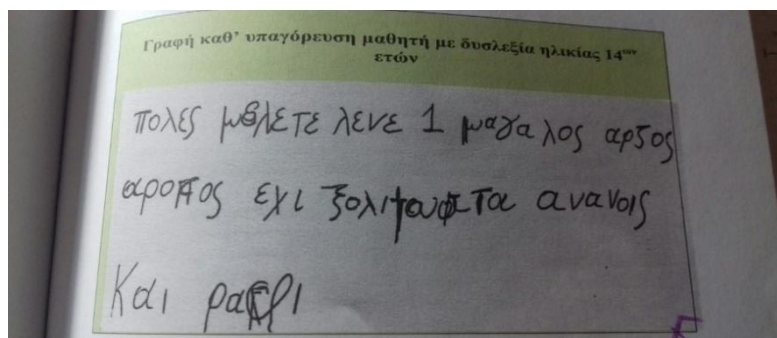 Γραφή καθ' υπαγόρευση μαθητή με δυσλεξία ηλικίας 14ων
ετών
πολες μελετε λενε 1 μαγα λος αρζος
αροπος εχι ανανοις
και